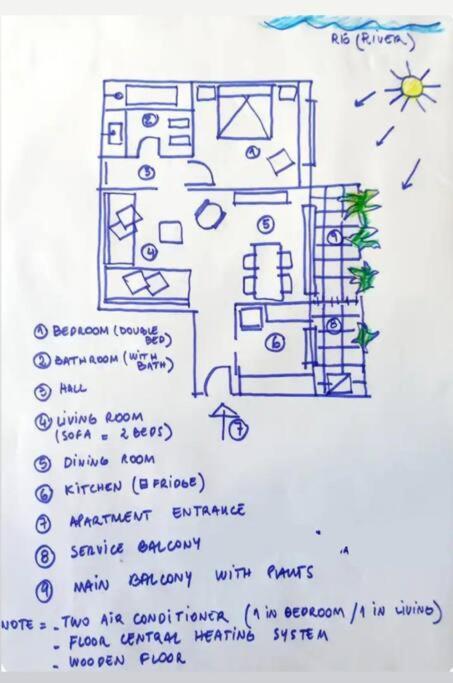 RIO (RIVER)
2
1
3
9
5
4
8
6
7
1 BEDROOM (DOUBLE
BED)
2 BATHROOM (WITH
BATH)
3 HALL
4 LIVING ROOM
(SOFA = 2 BEDS)
5 DINING ROOM
6 KITCHEN (FRIDGE)
7 APARTMENT ENTRANCE
8 SERVICE BALCONY
9 MAIN BALCONY WITH PLANTS
NOTE = - TWO AIR CONDITIONER (1 IN BEDROOM / 1 IN LIVING)
- FLOOR CENTRAL HEATING SYSTEM
- WOODEN FLOOR